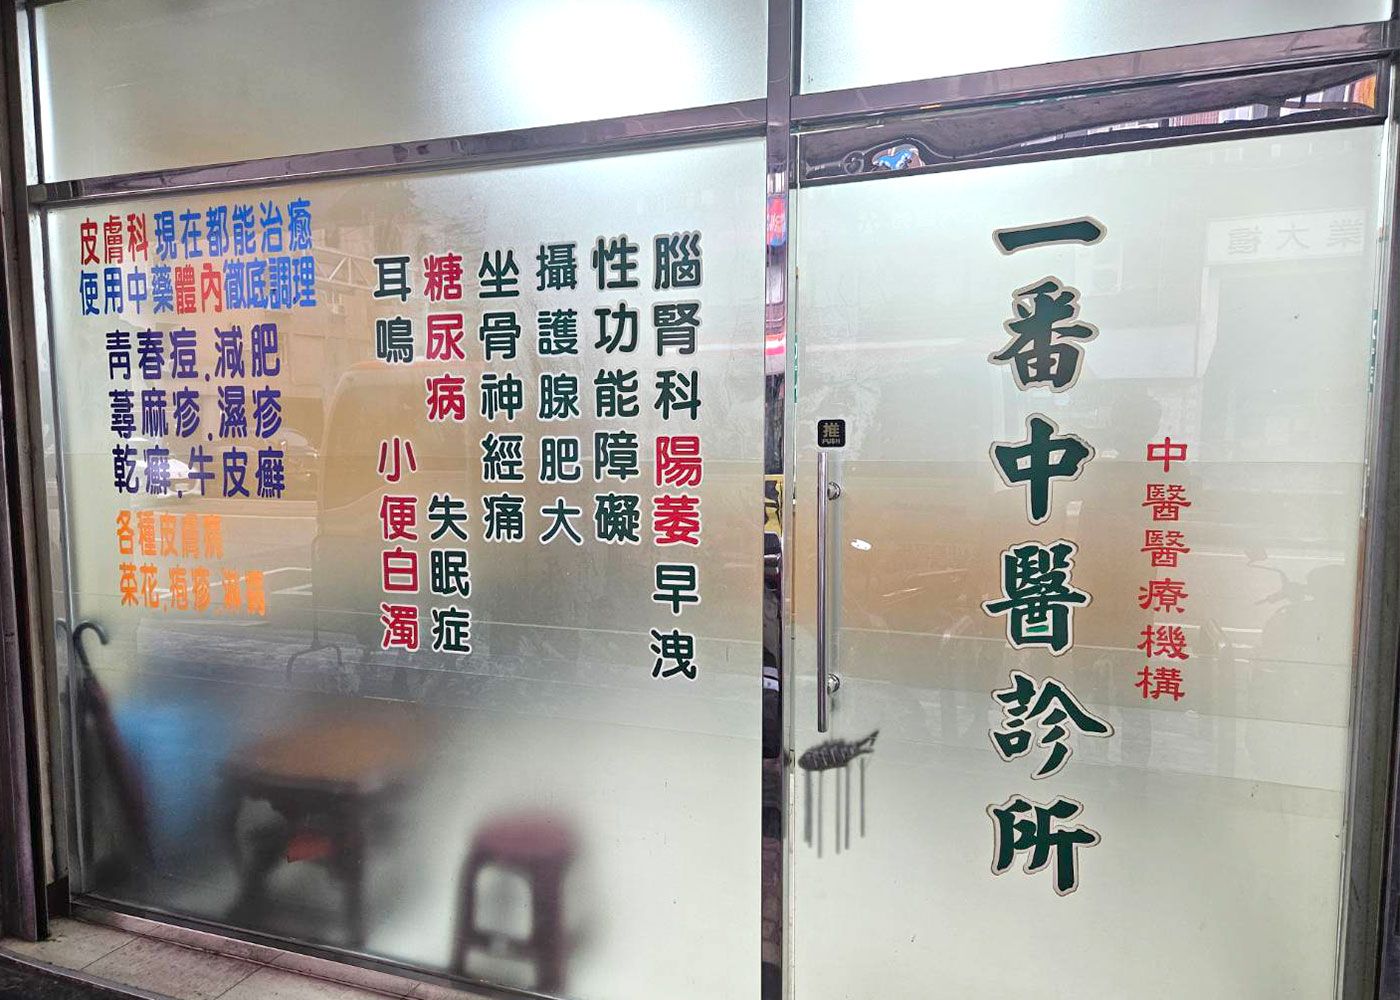 皮膚科 現在都能治癒
使用中藥體內徹底調理
青春痘.減肥
蕁麻疹.濕疹
乾癬.牛皮癬
各種皮膚病
菜花.疱疹.淋病
腦腎科陽萎早洩
性功能障礙
攝護腺肥大
坐骨神經痛
糖尿病 失眠症
耳鳴 小便白濁
推
PUSH
中醫醫療機構
一番中醫診所